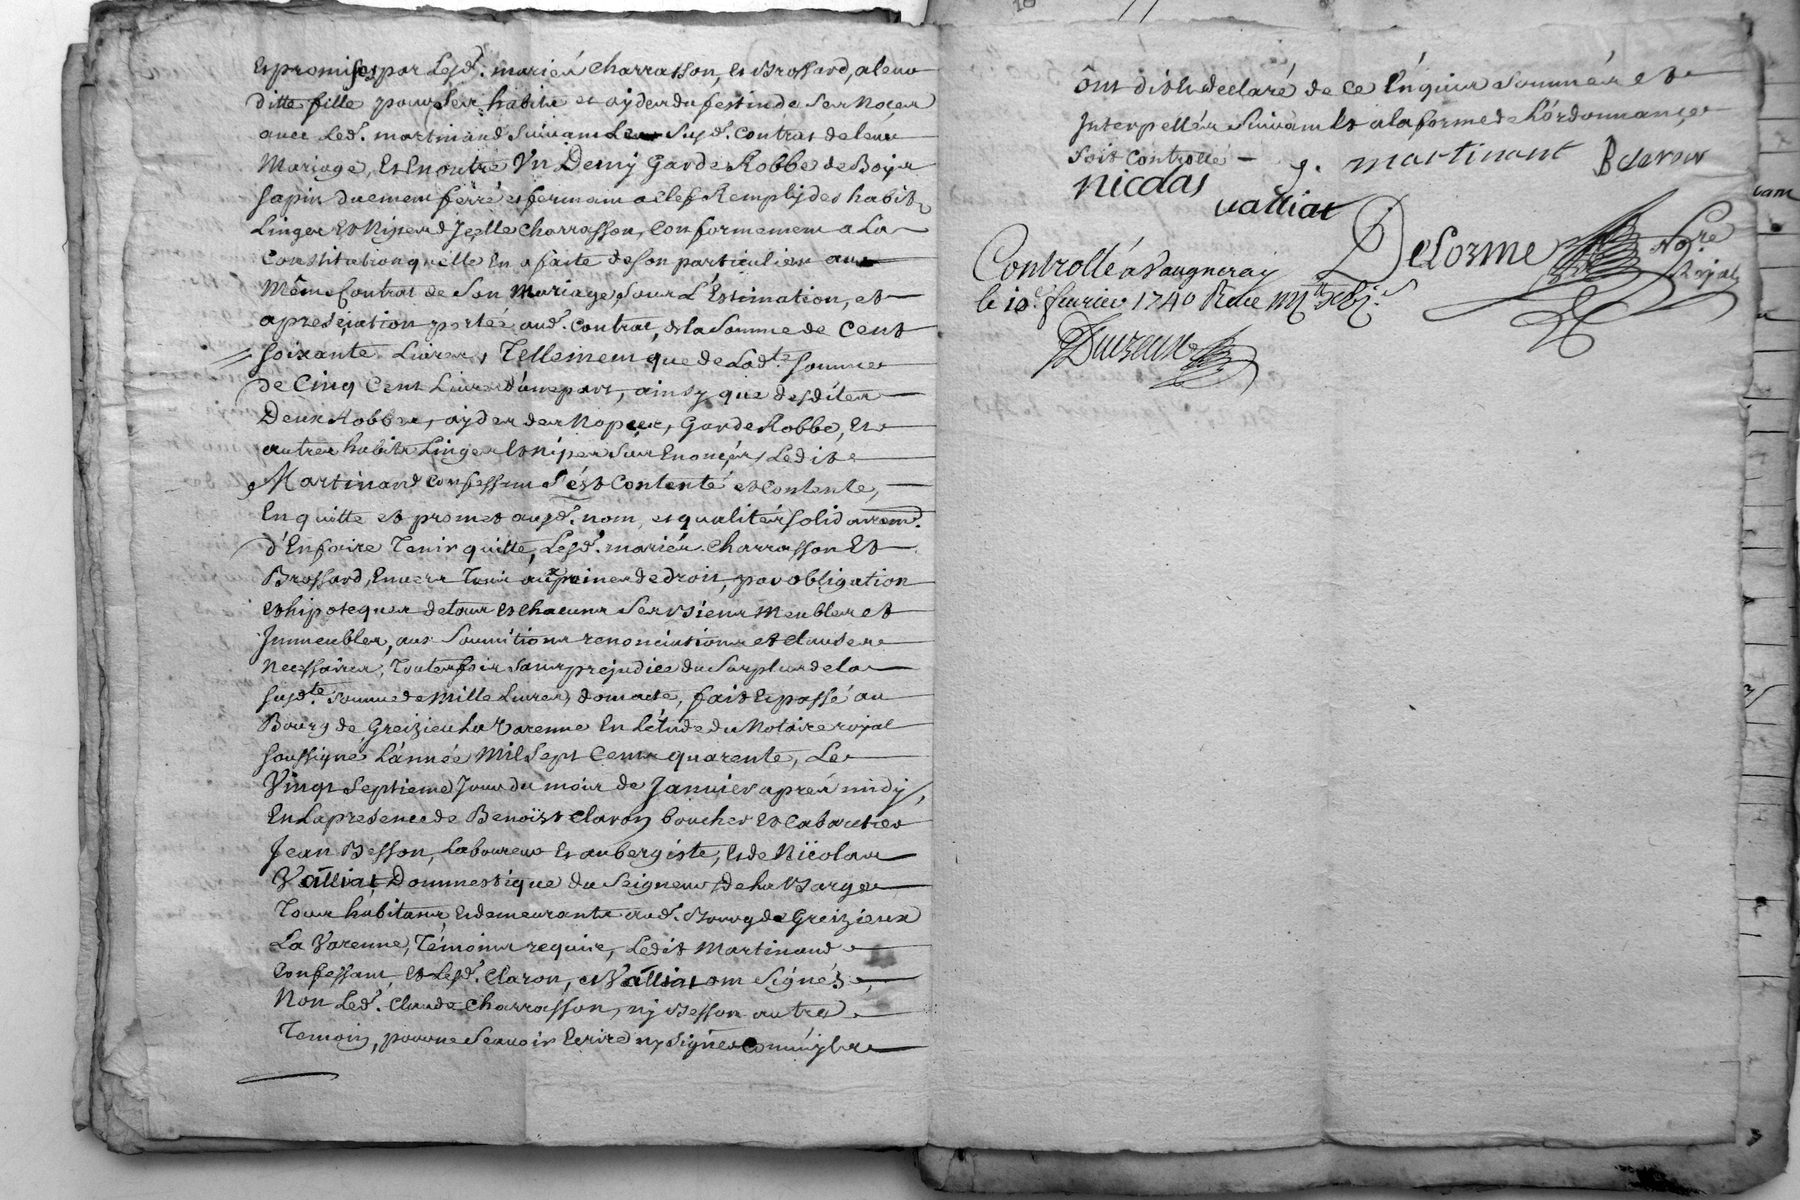 Et promises par Lesd. mariés Charrasson, Et Brossard, a leur
ditte fille pour Ses habits et ayder du festin de Ses Noces
avec Led. martinand Suivant Leur Susd. contrat de leur
Mariage, Et En outre Vn Demy Garde Robbe de Bois
sapin duement ferré et fermant a clef Remply des habits
Linges Et Nipes d'Jcelle Charrasson, Conformement a La
Constitution quelle En a faite de son particulier au
Même Contrat de Son Mariage, Sous L'Estimation, et
apreciation portée aud. contrat, de la Somme de Cent
soixante Livres, Tellement que de Lad.te somme
de Cinq Cent Livres d'une part, ainsy que desdites
Deux Robbes, ayde des Nopces, Garde Robbe, Et
autres habits Linges Et nipes Sus Enoncés, Ledit
Martinand Confessant S'ést Contenté et contente,
En quitte et promet ausd. nom, et qualités solidairem.t
d'En faire Tenir quitte, Lesd. mariés Charrasson Et
Brossard, Envers Tous aux peines de droit, par obligation
Et hipoteques de tous Et chacuns Ses Biens Meubles et
Jmmeubles, aux Soumitions renonciations et clauses
Necessaires, Toutesfois Sans prejudice du Surplus de la
susd.te Somme de Mille Livres, dont acte, fait Et passé au
Bourg de Greizieu La Varenne En L'étude du Notaire royal
soussigné L'année Mil Sept Cents quarente, Le
Vingt Septieme Jour du mois de Janvier aprés midy,
En La presence de Benoist Claron boucher Et Cabaretier
Jean Besson, Laboureur Et aubergiste, Et de Nicolas
Valliat Dommestique du Seigneur de La Barge
Tous habitans Et demeurants aud. Bourg de Greizieux
La Varenne, Témoins requis, Ledit Martinand
Confessant, Et Lesd. Claron, et Valliat ont Signés,
Non Led. Claude Charrasson, ny Besson autre
Temoin, pour ne Scavoir Ecrire ny Signer Comm'jls
ônt dit Et declaré de ce Enquis Sommés et
Jnterpellés Suivant Et a la forme de L'ordonnance
Soit Controllé - g. martinant B claron
nicolas
valliat
Delorme No.re
Royal
Controllé á Vaugneray
le 10e. fevrier 1740 Reçu